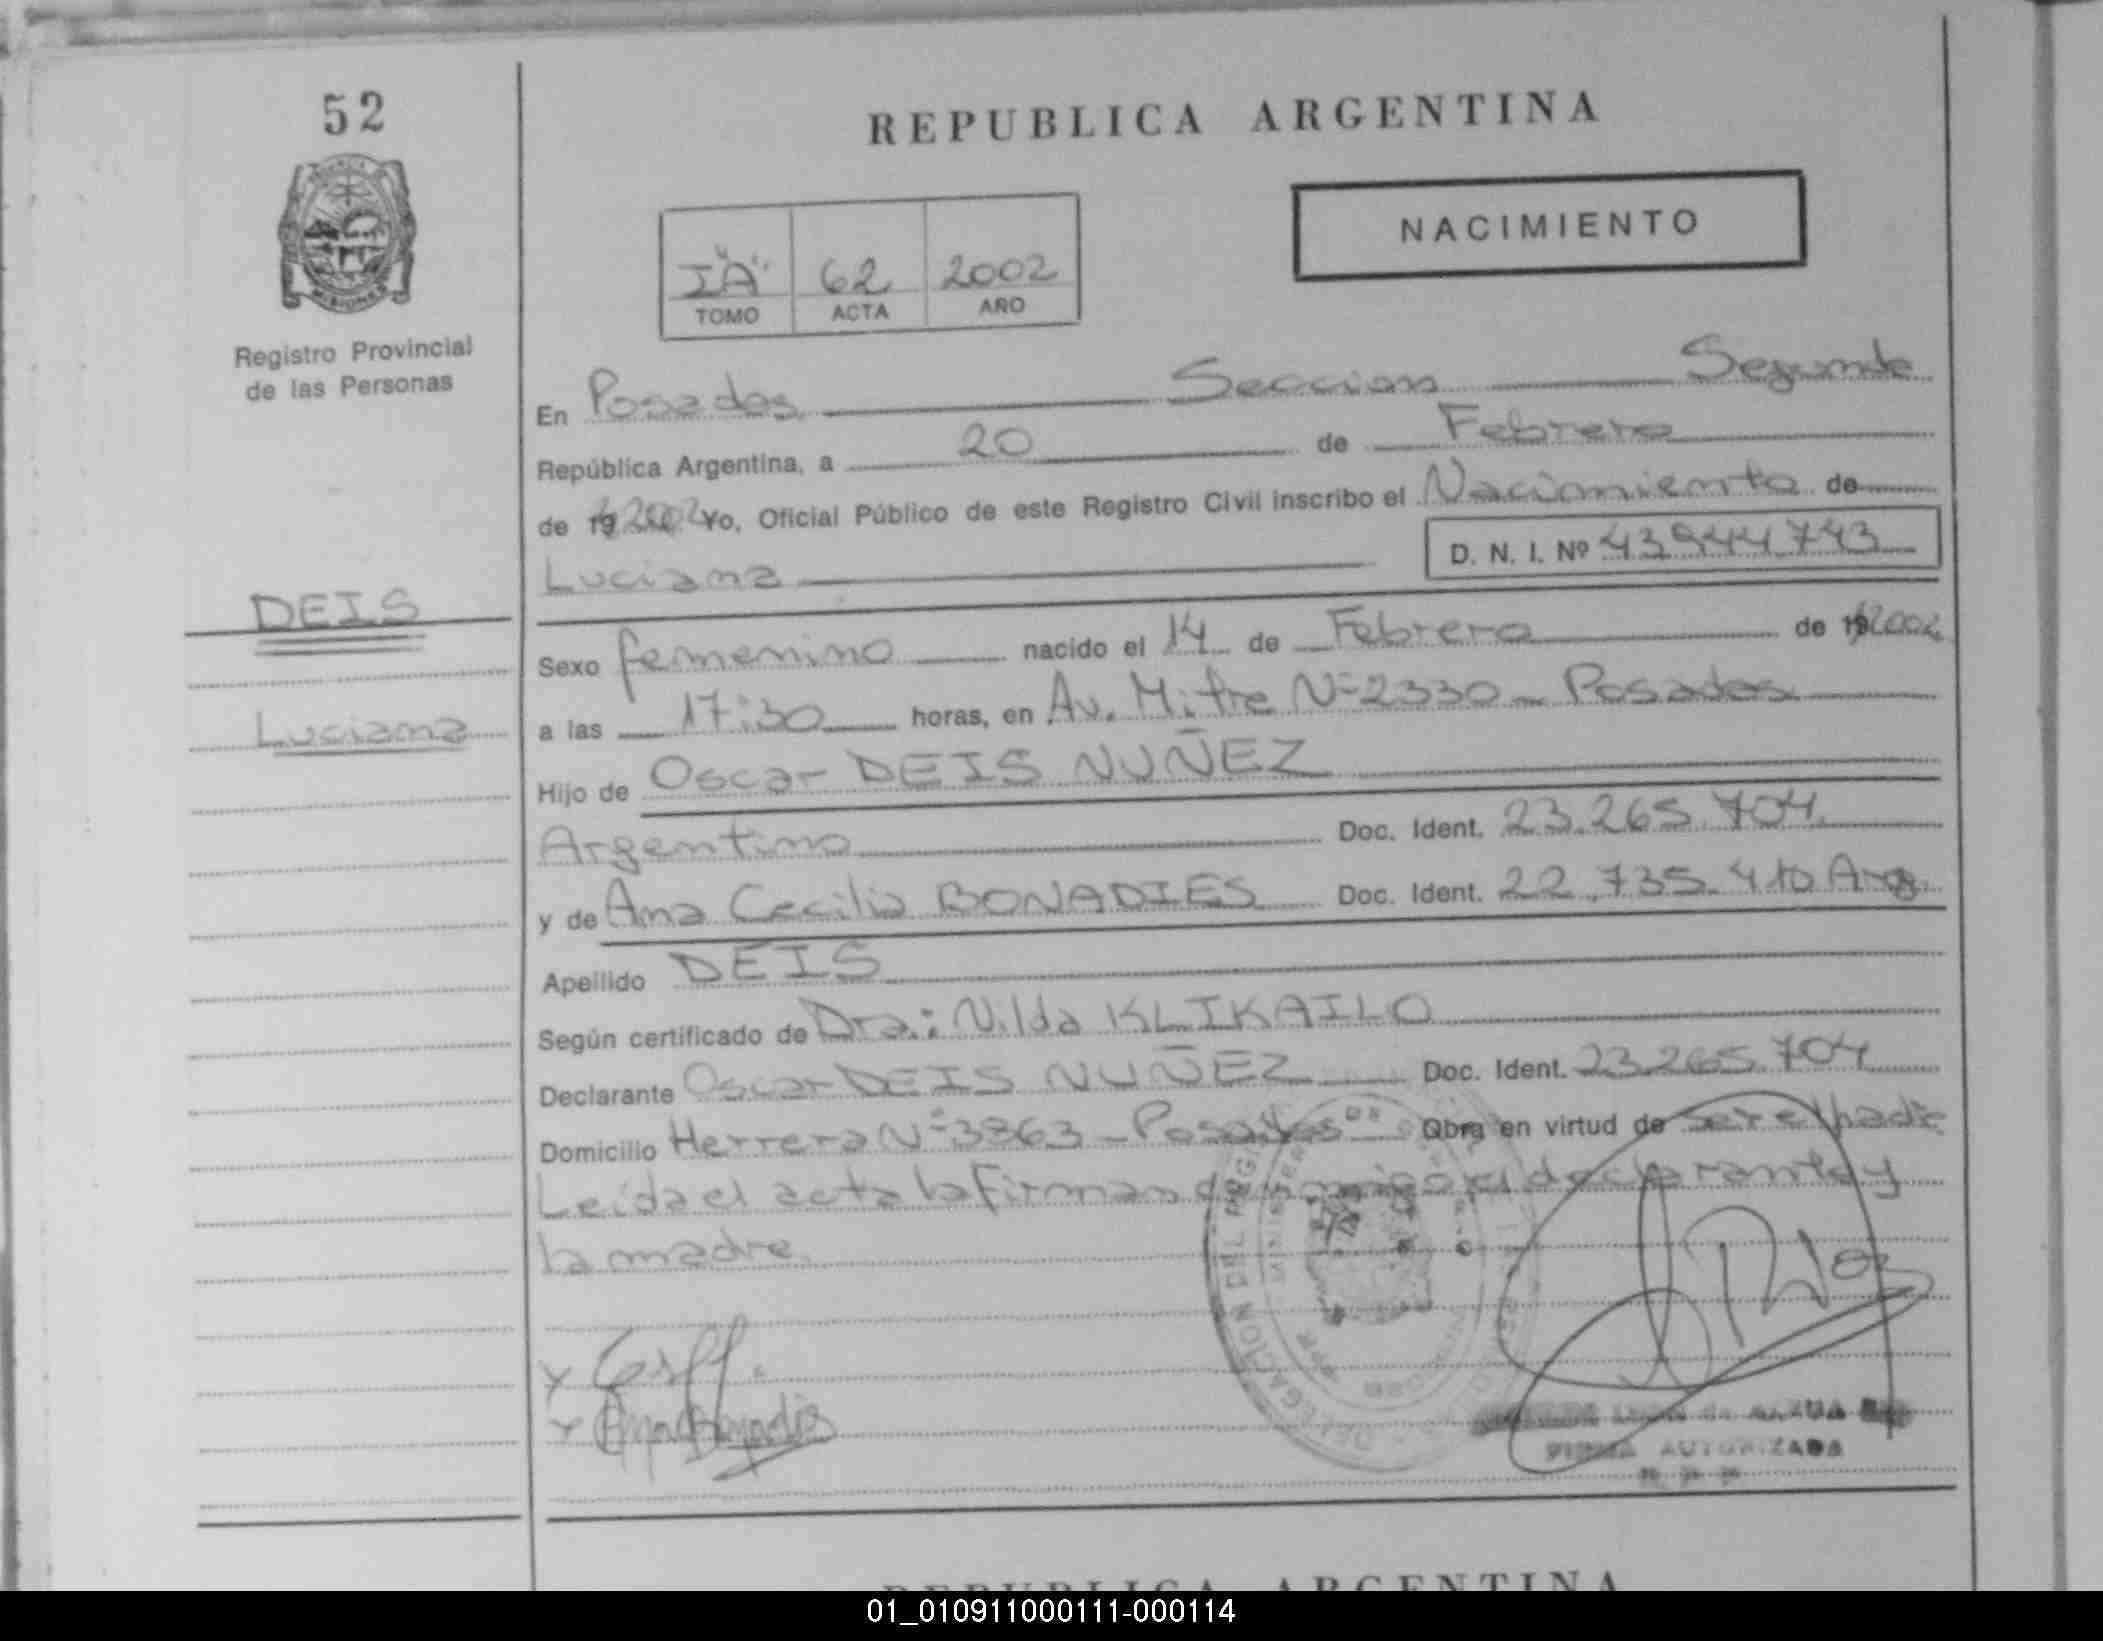 52
REPUBLICA ARGENTINA
NACIMIENTO
I "A" 62 2002
TOMO ACTA AÑO
MISIONES
Registro Provincial
de las Personas
En Posadas Seccion Segunda
República Argentina, a 20 de Febrero
de 19 2002 Yo, Oficial Público de este Registro Civil inscribo el Nacimiento de
Luciana D. N. I. Nº 43944743
DEIS
Sexo femenino nacido el 14 de Febrero de 19 2002
Luciana
a las 17:30 horas, en Av. Mitre Nº 2330 - Posadas
Hijo de Oscar DEIS NUÑEZ
Argentino Doc. Ident. 23.265.704
y de Ana Cecilia BONADIES Doc. Ident. 22.735.410 Arg.
Apellido DEIS
Según certificado de Dra.: Nilda KLIKAILO
Declarante Oscar DEIS NUÑEZ Doc. Ident. 23.265.704
Domicilio Herrera Nº 3863 - Posadas Obra en virtud de ser el padre
Leída el acta la firman conmigo el declarante y
la madre.
FIRMA AUTORIZADA
01_010911000111-000114